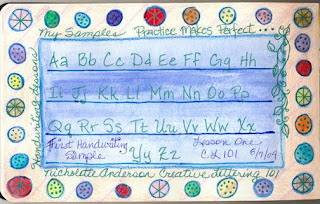 My Samples Practice Makes Perfect...
Aa Bb Cc Dd Ee Ff Gg Hh
Ii Jj Kk Ll Mm Nn Oo Pp
Qq Rr Ss Tt Uu Vv Ww Xx
Yy Zz
First Handwriting
Sample
Lesson One
CL 101 6/7/09
Handwriting Lessons
Anderson Creative Lettering 101